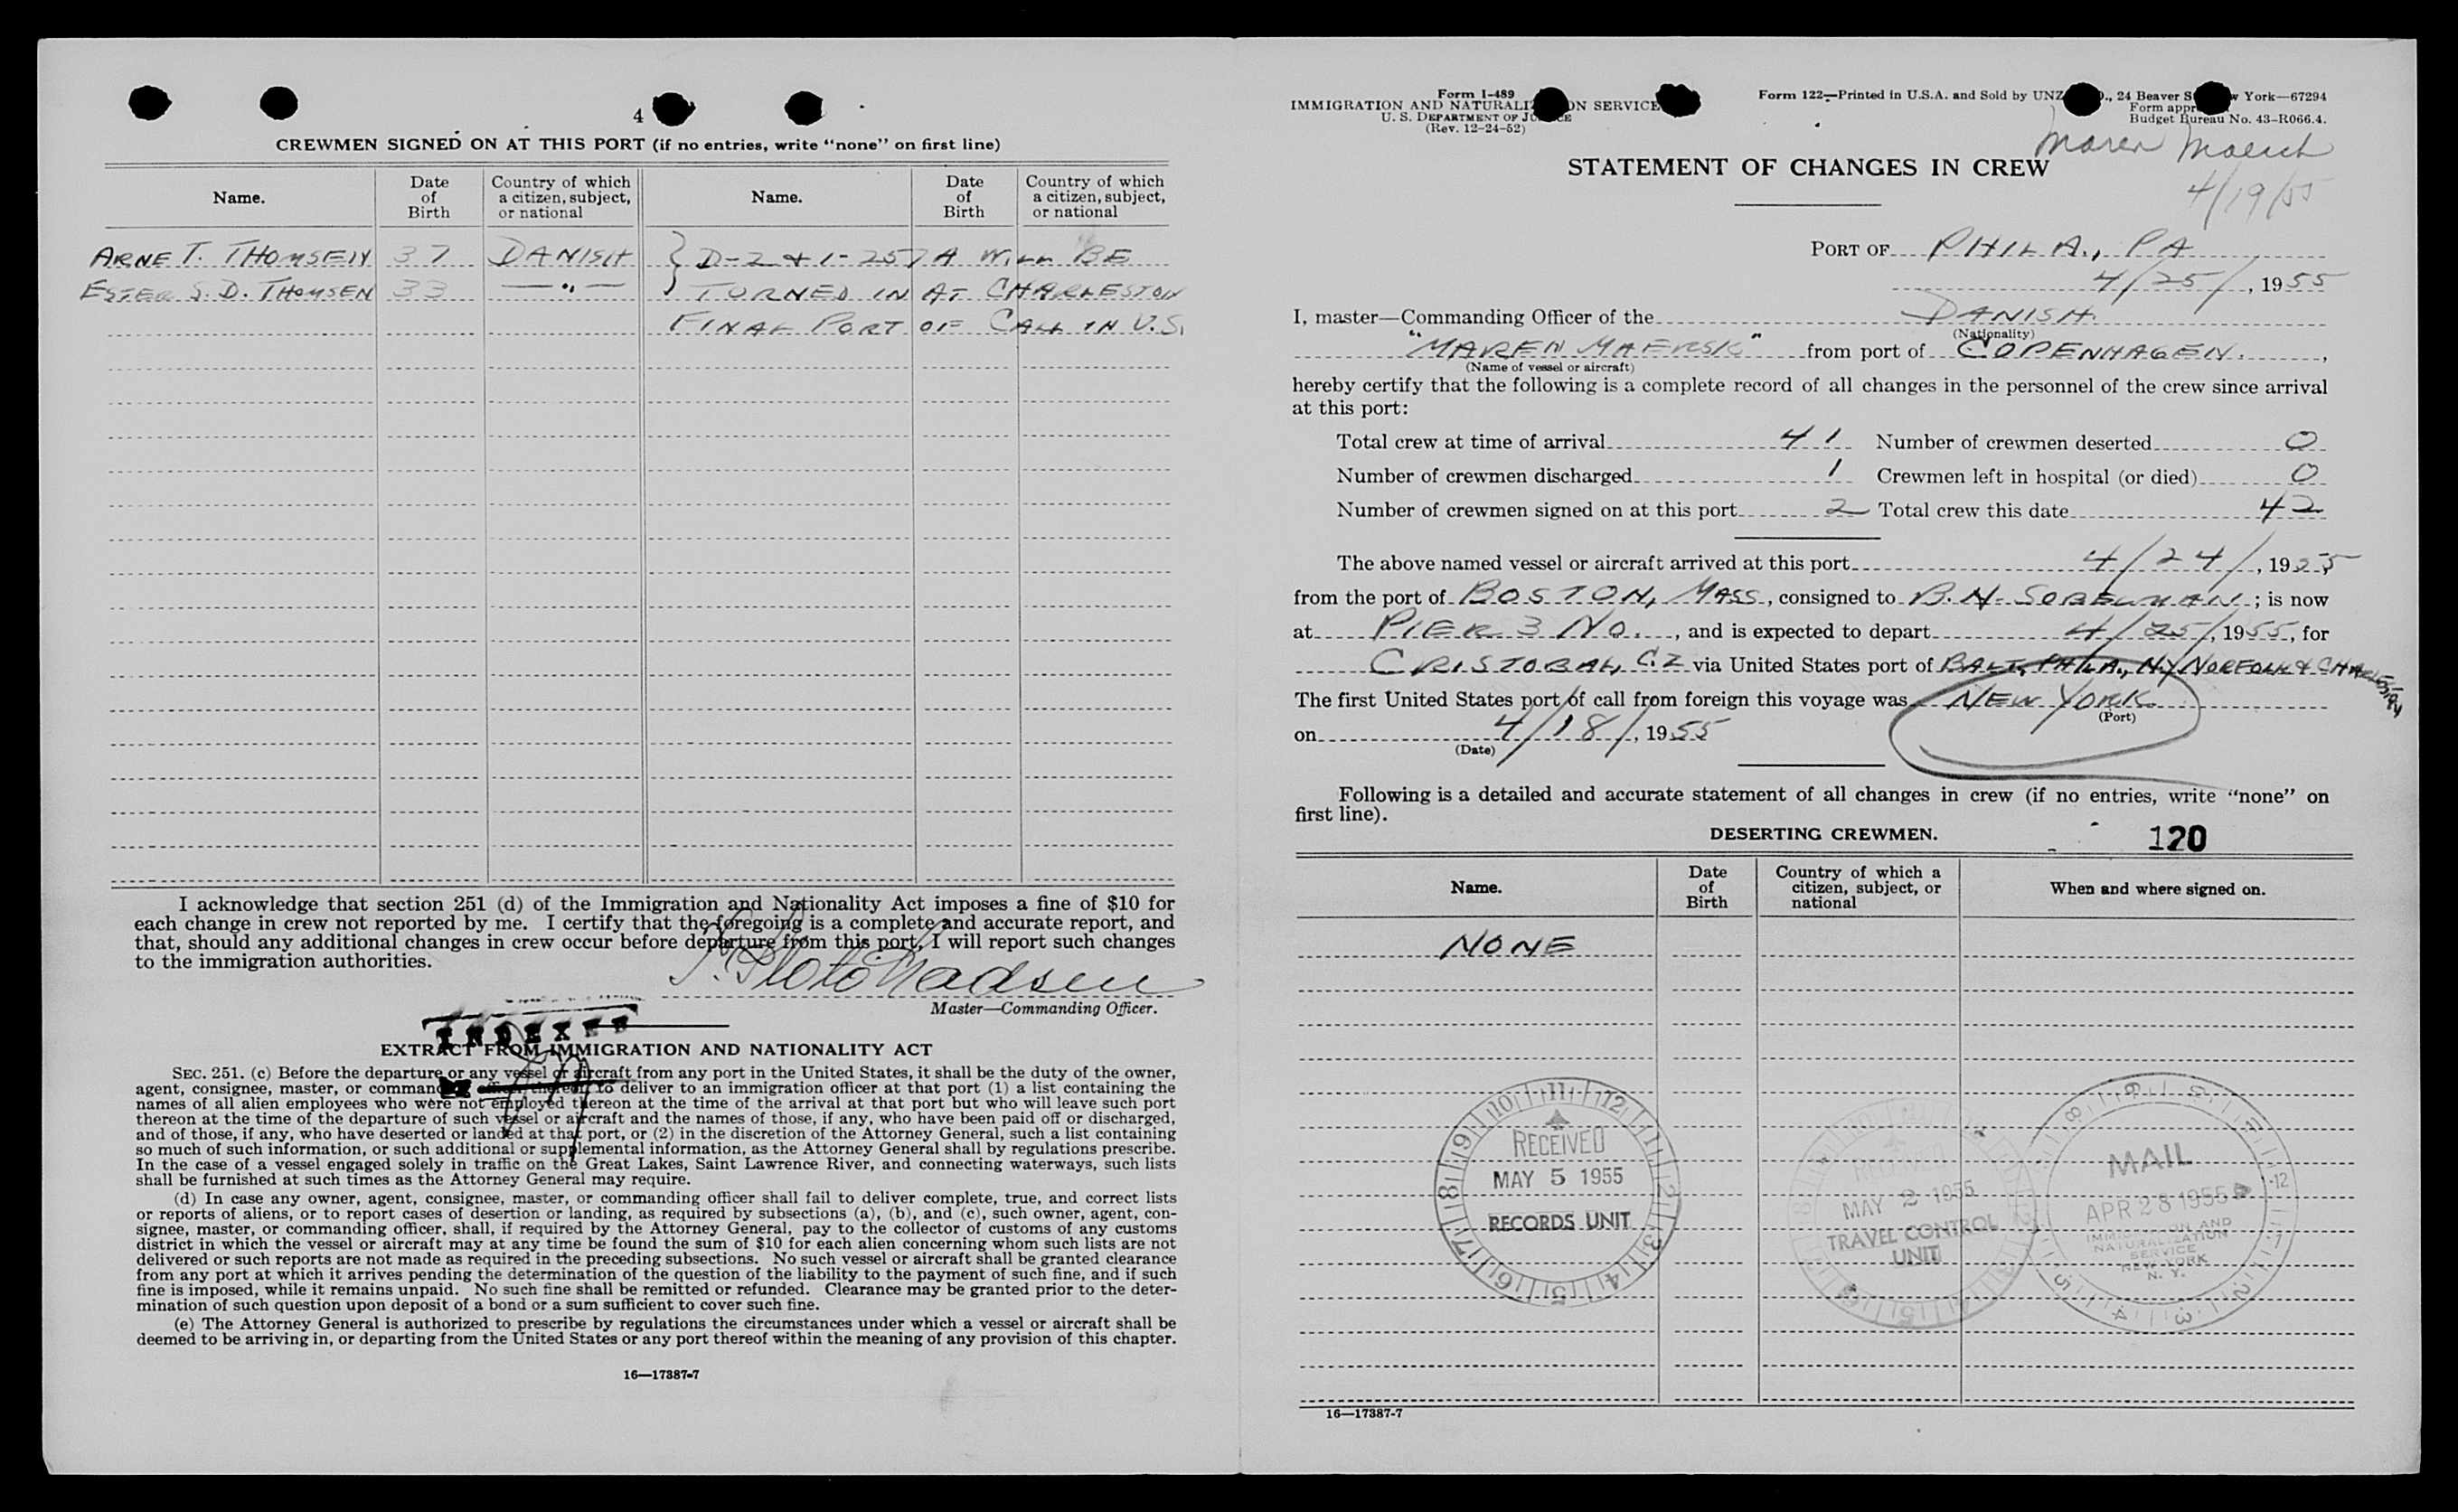 4
CREWMEN SIGNED ON AT THIS PORT (if no entries, write "none" on first line)
Name. Date of Birth Country of which a citizen, subject, or national Name. Date of Birth Country of which a citizen, subject, or national
ARNE T. THOMSEN 37 DANISH } D-2 & I-257A WILL BE
ESTER S. D. THOMSEN 33 — " — TURNED IN AT CHARLESTON
FINAL PORT OF CALL IN U.S.
I acknowledge that section 251 (d) of the Immigration and Nationality Act imposes a fine of $10 for
each change in crew not reported by me. I certify that the foregoing is a complete and accurate report, and
that, should any additional changes in crew occur before departure from this port, I will report such changes
to the immigration authorities.
Master—Commanding Officer.
INDEXED
EXTRACT FROM IMMIGRATION AND NATIONALITY ACT
SEC. 251. (c) Before the departure or any vessel or aircraft from any port in the United States, it shall be the duty of the owner,
agent, consignee, master, or commanding officer thereof to deliver to an immigration officer at that port (1) a list containing the
names of all alien employees who were not employed thereon at the time of the arrival at that port but who will leave such port
thereon at the time of the departure of such vessel or aircraft and the names of those, if any, who have been paid off or discharged,
and of those, if any, who have deserted or landed at that port, or (2) in the discretion of the Attorney General, such a list containing
so much of such information, or such additional or supplemental information, as the Attorney General shall by regulations prescribe.
In the case of a vessel engaged solely in traffic on the Great Lakes, Saint Lawrence River, and connecting waterways, such lists
shall be furnished at such times as the Attorney General may require.
(d) In case any owner, agent, consignee, master, or commanding officer shall fail to deliver complete, true, and correct lists
or reports of aliens, or to report cases of desertion or landing, as required by subsections (a), (b), and (c), such owner, agent, con-
signee, master, or commanding officer, shall, if required by the Attorney General, pay to the collector of customs of any customs
district in which the vessel or aircraft may at any time be found the sum of $10 for each alien concerning whom such lists are not
delivered or such reports are not made as required in the preceding subsections. No such vessel or aircraft shall be granted clearance
from any port at which it arrives pending the determination of the question of the liability to the payment of such fine, and if such
fine is imposed, while it remains unpaid. No such fine shall be remitted or refunded. Clearance may be granted prior to the deter-
mination of such question upon deposit of a bond or a sum sufficient to cover such fine.
(e) The Attorney General is authorized to prescribe by regulations the circumstances under which a vessel or aircraft shall be
deemed to be arriving in, or departing from the United States or any port thereof within the meaning of any provision of this chapter.
16—17387-7
Form I-489
IMMIGRATION AND NATURALIZATION SERVICE
U. S. DEPARTMENT OF JUSTICE
(Rev. 12-24-52)
Form 122—Printed in U.S.A. and Sold by 24 Beaver York—67294
Form
Budget Bureau No. 43-R066.4.
Maren
4/19/55
STATEMENT OF CHANGES IN CREW
PORT OF PHILA., PA
4/25/, 1955
I, master—Commanding Officer of the DANISH.
(Nationality)
"MAREN MAERSK" from port of COPENHAGEN.,
(Name of vessel or aircraft)
hereby certify that the following is a complete record of all changes in the personnel of the crew since arrival
at this port:
Total crew at time of arrival 41 Number of crewmen deserted 0
Number of crewmen discharged 1 Crewmen left in hospital (or died) 0
Number of crewmen signed on at this port 2 Total crew this date 42
The above named vessel or aircraft arrived at this port 4/24/, 1955
from the port of BOSTON, MASS, consigned to B. H. SOBELMAN; is now
at PIER 3 NO., and is expected to depart 4/25/, 1955, for
CRISTOBAL, C.Z via United States port of BALT, PHILA., NY, NORFOLK & CHARLESTON
The first United States port of call from foreign this voyage was NEW YORK
(Port)
on 4/18/, 1955
(Date)
Following is a detailed and accurate statement of all changes in crew (if no entries, write "none" on
first line).
DESERTING CREWMEN.
120
Name. Date of Birth Country of which a citizen, subject, or national When and where signed on.
NONE
RECEIVED
MAY 5 1955
RECORDS UNIT
RECEIVED
MAY 2 1955
TRAVEL CONTROL
UNIT
MAIL
APR 28 1955
IMMIGRATION AND
NATURALIZATION
SERVICE
NEW YORK
N. Y.
16—17387-7